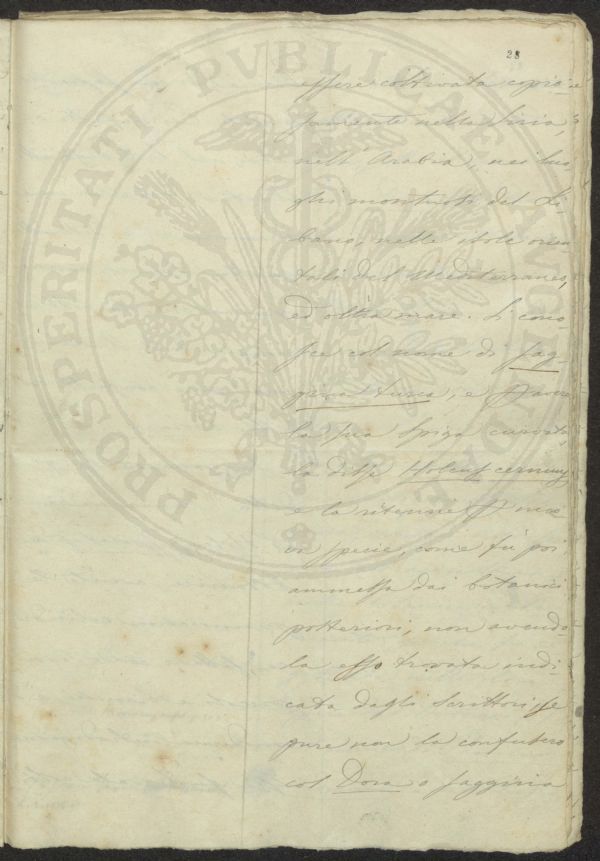 28
essere coltivata copio-
samente nella Siria,
nell' Arabia, nei luo-
ghi montuosi del Li-
bano, nelle isole orien-
tali del Mediterraneo,
ed oltra mare. Si cono-
sce col nome di Sag-
gina turca, e
la sua spiga curvata,
la disse Holcus cernuus
e la ritenne
va specie, come fù poi
ammessa dai botanici
posteriori, non avendo-
la esso trovata indi-
cata dagli Scrittori, se
pure non la confusero
col Dora o Saggina
PROSPERITATI PUBLICAE AUGENDAE